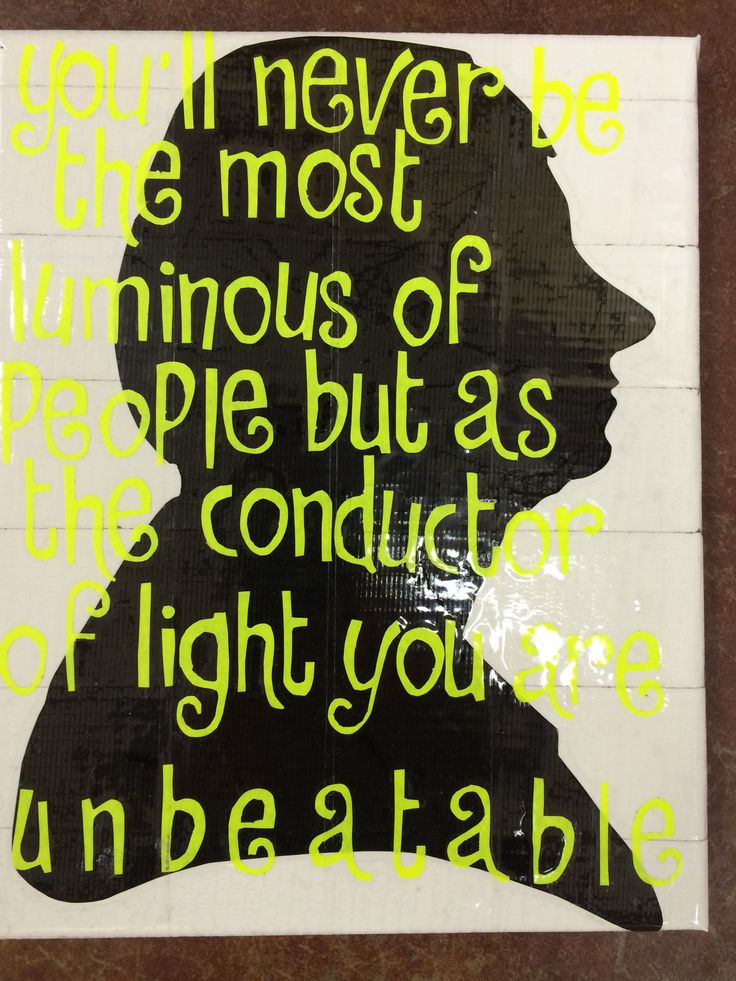 you'll never be
the most
luminous of
people but as
the conductor
of light you are
unbeatable